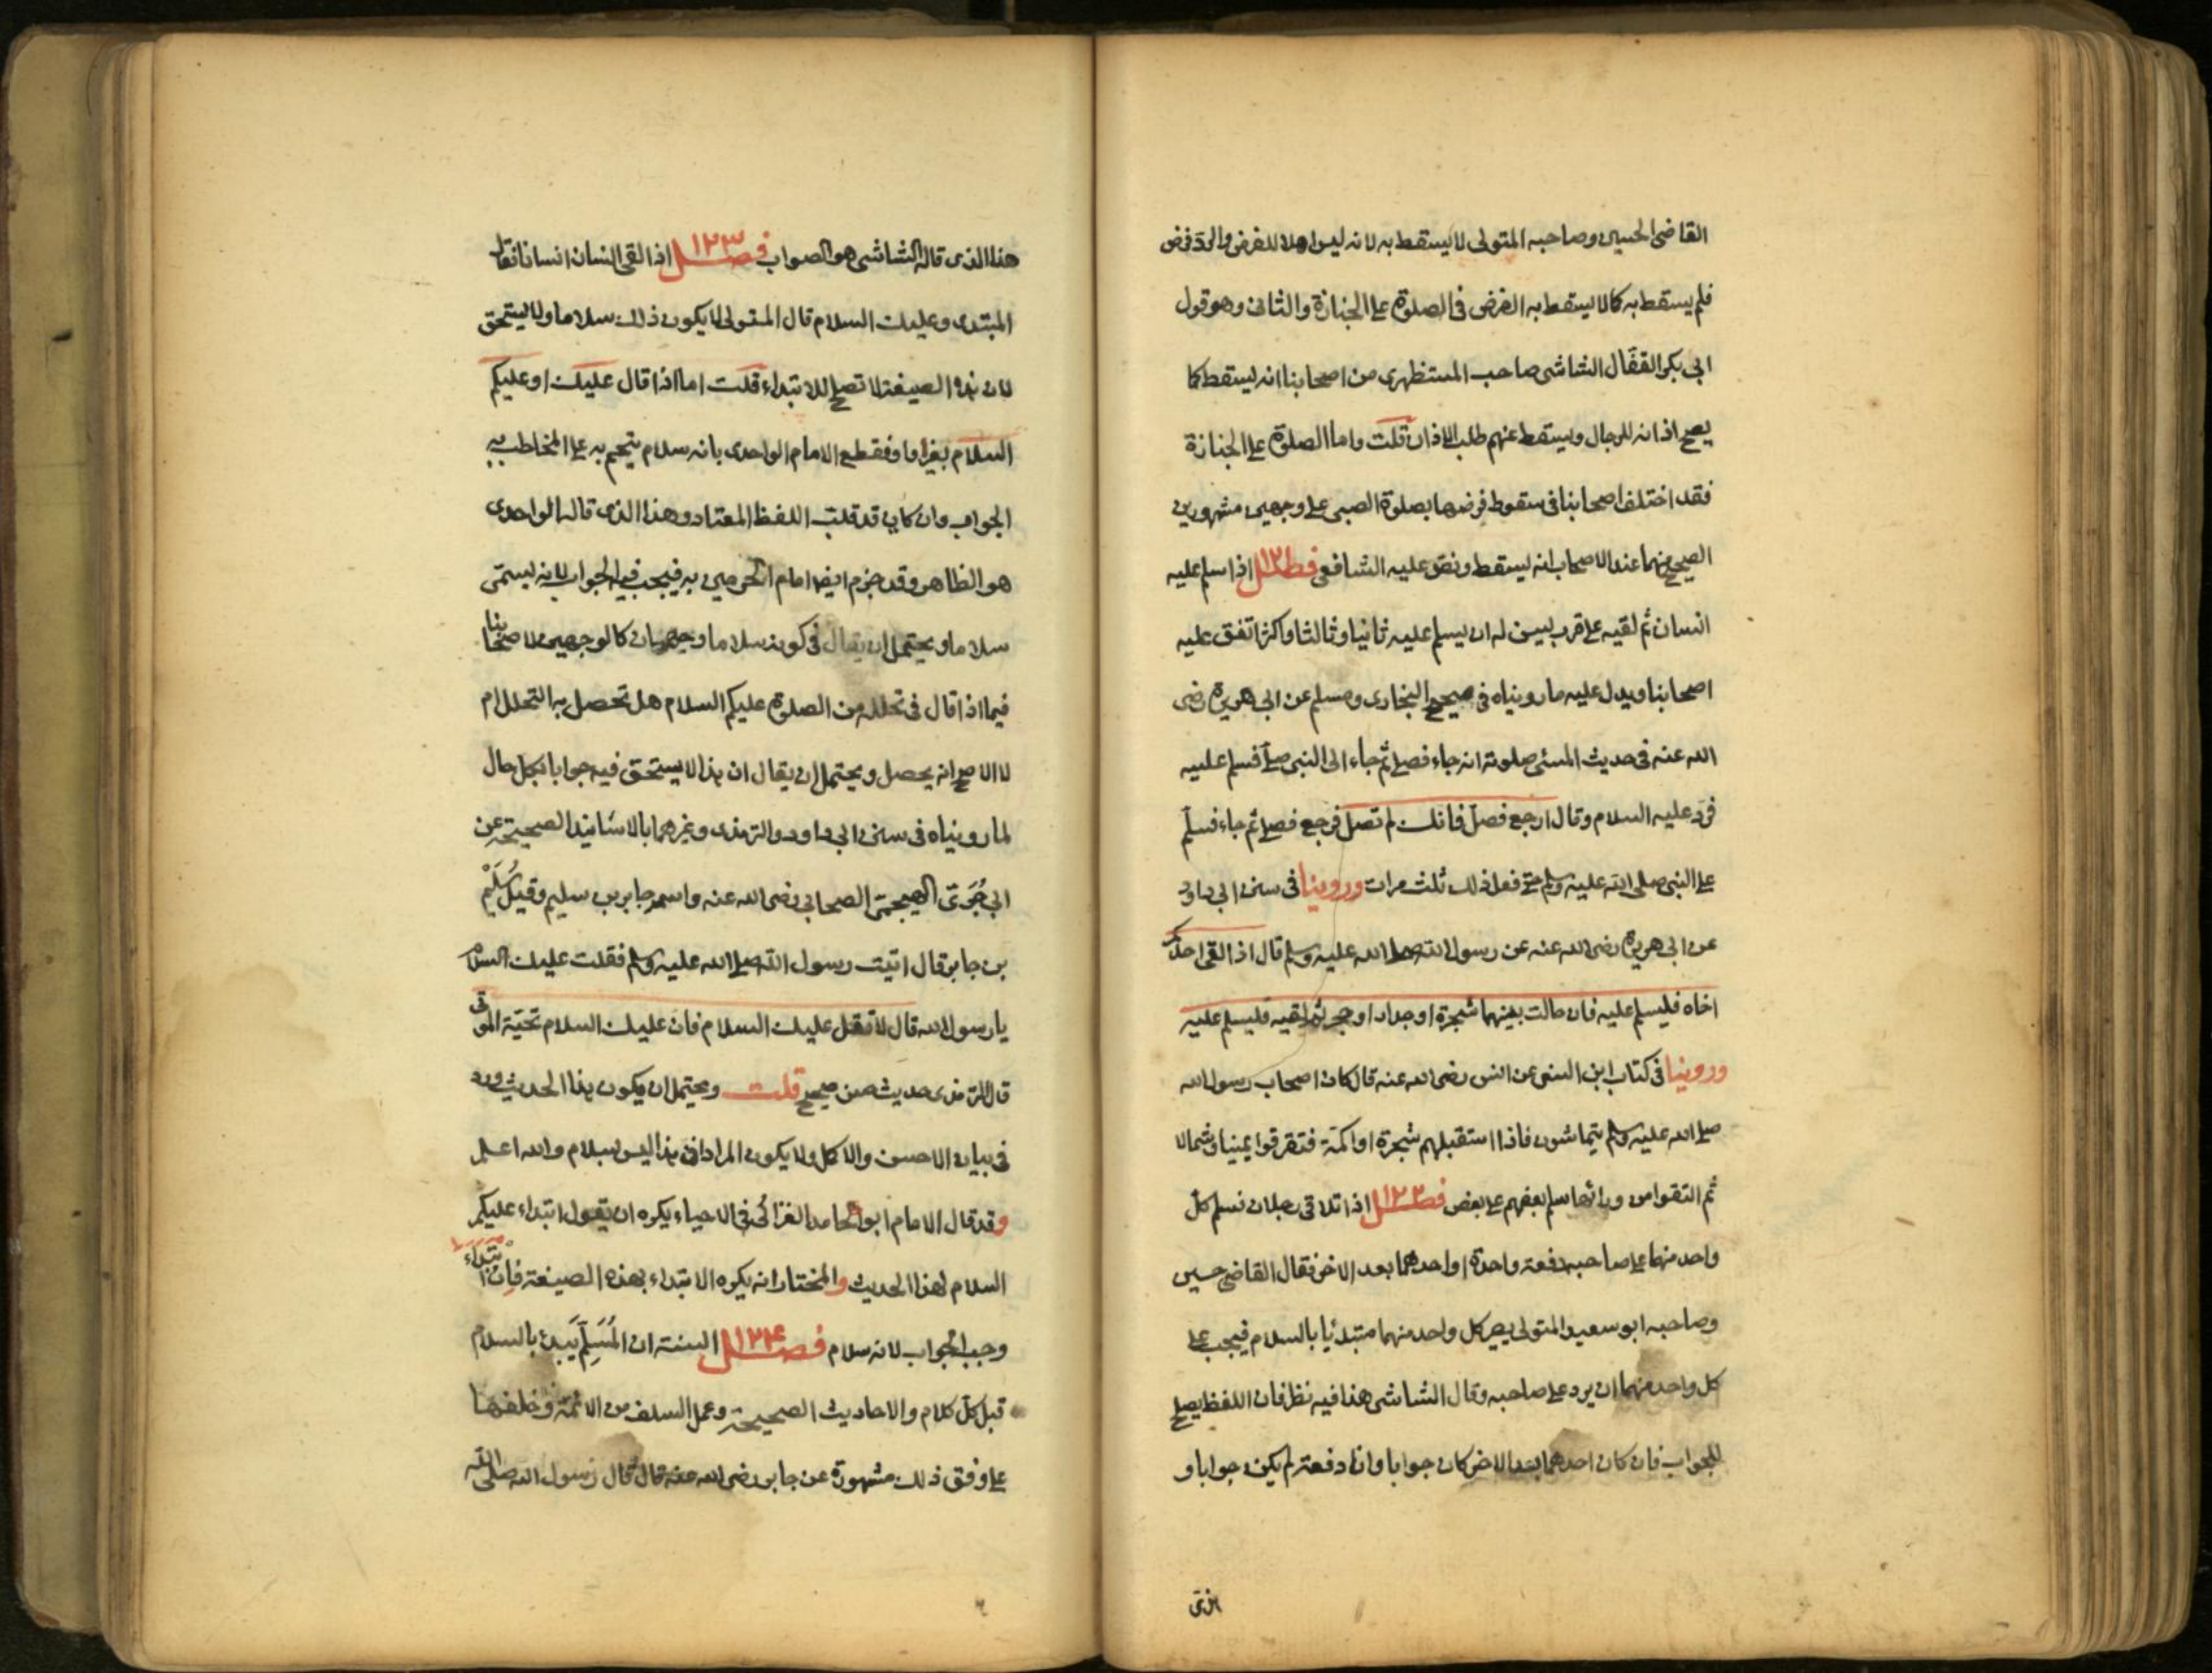 القاضى الحسين وصاحبه المتولى لا يسقط به لانه ليس اهلا للفرض والرد فرض
فلم يسقط به كما لا يسقط به الفرض فى الصلوة على الجنازة والثانى وهو قول
ابى بكر القفال الشاشى صاحب المستظهرى من اصحابنا انه يسقط كما
يصح اذانه للرجال ويسقط عنهم طلب الاذان قلت واما الصلوة على الجنازة
فقد اختلف اصحابنا فى سقوط فرضها بصلوة الصبى على وجهين مشهورين
الصحيح منهما عند الاصحاب انه يسقط ونص عليه الشافعى فصل ١٢١ اذا سلم عليه
انسان ثم لقيه على قرب يسن له ان يسلم عليه ثانيا وثالثا واكثر اتفق عليه
اصحابنا ويدل عليه ما رويناه فى صحيح البخارى ومسلم عن ابى هريرة رضى
الله عنه فى حديث المسئ صلوته انه جاء فصلى ثم جاء الى النبى صلّم فسلم عليه
فرد عليه السلام وقال ارجع فصل فانك لم تصل فرجع فصلى ثم جاء فسلّم
على النبى صلى الله عليه وسلم حتى فعل ذلك ثلث مرات وروينا فى سنن ابى داود
عن ابى هريرة رضى الله عنه عن رسول الله صلى الله عليه وسلم قال اذا لقى احدكم
اخاه فليسلم عليه فان حالت بينهما شجرة او جدار او حجر ثم لقيه فليسلم عليه
وروينا فى كتاب ابن السنى عن انس رضى الله عنه قال كان اصحاب رسول الله
صلى الله عليه وسلم يتماشون فاذا استقبلهم شجرة او اكمة فتفرقوا يمينا وشمالا
ثم التقوا من ورائها سلم بعضهم على بعض فصل ١٢٢ اذا تلاقى رجلان فسلم كل
واحد منهما على صاحبه دفعة واحدة او احدهما بعد الاخر فقال القاضى حسين
وصاحبه ابو سعيد المتولى يصير كل واحد منهما مبتدئا بالسلام فيجب على
كل واحد منهما ان يرد على صاحبه وقال الشاشى هذا فيه نظر فان اللفظ يصلح
للجواب فان كان احدهما بعد الاخر كان جوابا وان كانا دفعة لم يكن جوابا و
هذا الذى
هذا الذى قاله الشاشى هو الصواب فصل ١٢٣ اذا لقى انسان انسانا فقال
المبتدى وعليك السلام قال المتولى لا يكون ذلك سلاما ولا يستحق
لان هذه الصيغة لا تصلح للابتداء قلت اما اذا قال عليك او عليكم
السلام بغير واو فقطع الامام الواحدى بانه سلام يتحتم به على المخاطب به
الجواب وان كان قد قلب اللفظ المعتاد وهذا الذى قاله الواحدى
هو الظاهر وقد جزم ايضا امام الحرمين به فيجب فيه الجواب لانه يسمى
سلاما ويحتمل ان يقال فى كونه سلاما وجهان كالوجهين لاصحابنا
فيما اذا قال فى تحلله من الصلوة عليكم السلام هل تحصل به التحلل ام
لا الاصح انه يحصل ويحتمل ان يقال ان هذا لا يستحق فيه جوابا بكل حال
لما رويناه فى سنن ابى داود والترمذى وغيرهما بالاسانيد الصحيحة عن
ابى جُرَىّ الهجيمىّ الصحابى رضى الله عنه واسمه جابر بن سليم وقيل سُلَيْم
بن جابر قال اتيت رسول الله صلى الله عليه وسلم فقلت عليك السلام
يا رسول الله قال لا تقل عليك السلام فان عليك السلام تحيّة الموتى
قال الترمذى حديث حسن صحيح قلت ويحتمل ان يكون هذا الحديث ورد
فى بيان الاحسن والاكمل ولا يكون المراد ان هذا ليس بسلام والله اعلم
وقد قال الامام ابو حامد الغزالى فى الاحياء يكره ان يقول ابتداء عليكم
السلام لهذا الحديث والمختار انه يكره الابتداء بهذه الصيغة فان ابتداء
وجب الجواب لانه سلام فصل ١٢٤ السنة ان المُسَلِّم يَبدئ بالسلام
قبل كل كلام والاحاديث الصحيحة وعمل السلف من الائمة وخلفها
على وفق ذلك مشهورة عن جابر رضى الله عنه قال قال رسول الله صلى الله